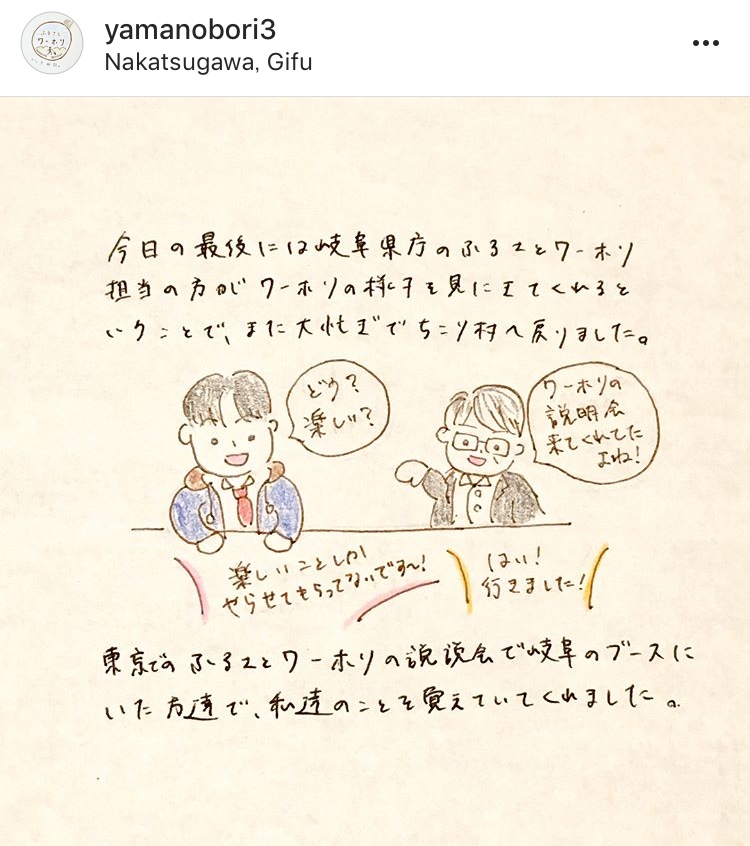 yamanobori3
Nakatsugawa, Gifu
ふるさと
ワーホリ
今日の最後には岐阜県庁のふるさとワーホリ
担当の方がワーホリの様子を見にきてくれると
いうことで、また大忙ぎでちこり村へ戻りました。
どう?
楽しい?
ワーホリの
説明会
来てくれてた
よね!
楽しいことしか
やらせてもらってないです〜!
はい!
行きました!
東京でのふるさとワーホリの説説会で岐阜のブースに
いた方達で、私達のことを覚えていてくれました。